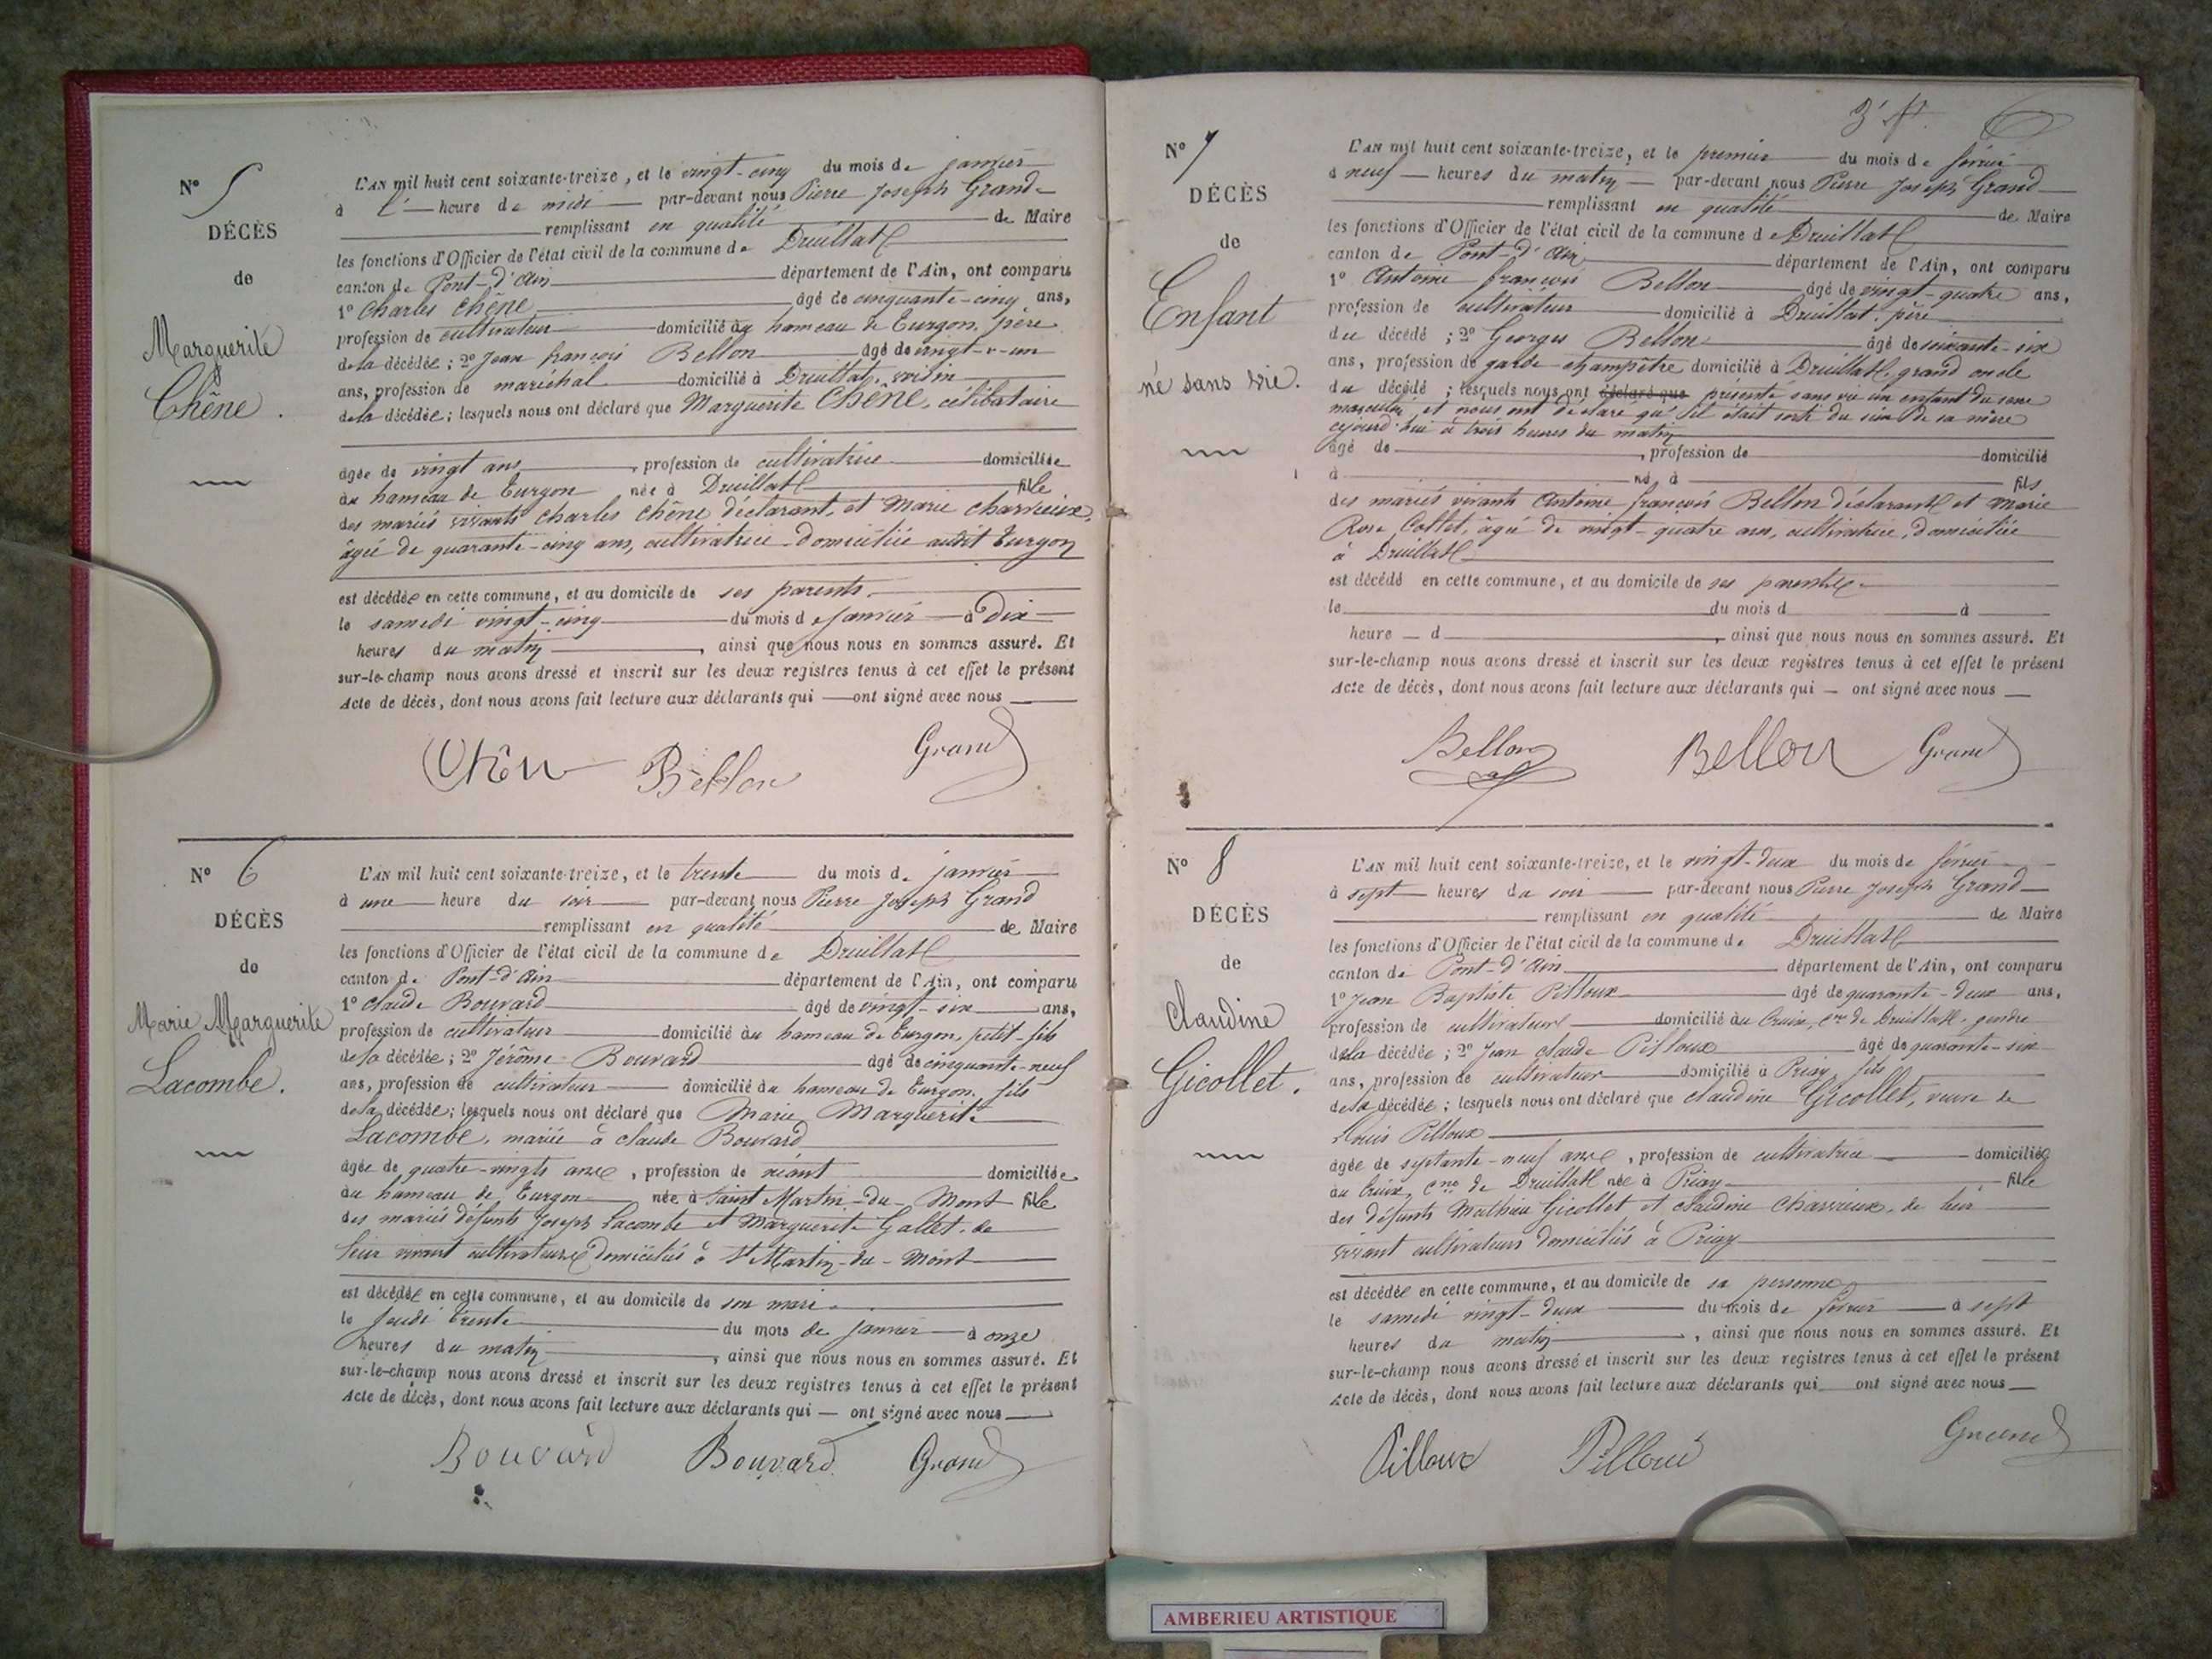 N° 5
DÉCÈS
de
Marguerite
Chêne.
L'AN mil huit cent soixante-treize, et le vingt-cinq du mois de janvier
à l' heure de midi par-devant nous Pierre Joseph Grand
remplissant en qualité de Maire
les fonctions d'Officier de l'état civil de la commune de Druillat
canton de Pont-d'Ain département de l'Ain, ont comparu
1° Charles Chêne âgé de cinquante-cinq ans,
profession de cultivateur domicilié au hameau de Turgon, père
de la décédée; 2° Jean françois Bellon âgé de vingt-un
ans, profession de maréchal domicilié à Druillat, voisin
de la décédée; lesquels nous ont déclaré que Marguerite Chêne, célibataire
âgée de vingt ans, profession de cultivatrice domiciliée
au hameau de Turgon née à Druillat fille
des mariés vivants Charles Chêne déclarant, et Marie Charvieux,
âgée de quarante-cinq ans, cultivatrice domiciliée audit Turgon
est décédée en cette commune, et au domicile de ses parents.
le samedi vingt-cinq du mois de janvier à dix
heures du matin, ainsi que nous nous en sommes assuré. Et
sur-le-champ nous avons dressé et inscrit sur les deux registres tenus à cet effet le présent
Acte de décès, dont nous avons fait lecture aux déclarants qui ont signé avec nous
Chêne Bellon Grand
N° 6
DÉCÈS
de
Marie Marguerite
Lacombe.
L'AN mil huit cent soixante-treize, et le trente du mois de janvier
à une heure du soir par-devant nous Pierre Joseph Grand
remplissant en qualité de Maire
les fonctions d'Officier de l'état civil de la commune de Druillat
canton de Pont-d'Ain département de l'Ain, ont comparu
1° Claude Bouvard âgé de vingt-six ans,
profession de cultivateur domicilié au hameau de Turgon, petit-fils
de la décédée; 2° Jérôme Bouvard âgé de cinquante-neuf
ans, profession de cultivateur domicilié au hameau de Turgon, fils
de la décédée; lesquels nous ont déclaré que Marie Marguerite
Lacombe, mariée à Claude Bouvard
âgée de quatre-vingts ans, profession de néant domiciliée
au hameau de Turgon née à Saint Martin-du-Mont fille
des mariés défunts Joseph Lacombe et Marguerite Gallet, de
leur vivant cultivateurs domiciliés à St Martin-du-Mont
est décédée en cette commune, et au domicile de son mari.
le Jeudi trente du mois de janvier à onze
heures du matin, ainsi que nous nous en sommes assuré. Et
sur-le-champ nous avons dressé et inscrit sur les deux registres tenus à cet effet le présent
Acte de décès, dont nous avons fait lecture aux déclarants qui ont signé avec nous
Bouvard Bouvard Grand
N° 7
DÉCÈS
de
Enfant
né sans vie.
L'AN mil huit cent soixante-treize, et le premier du mois de février
à neuf heures du matin par-devant nous Pierre Joseph Grand
remplissant en qualité de Maire
les fonctions d'Officier de l'état civil de la commune de Druillat
canton de Pont-d'Ain département de l'Ain, ont comparu
1° Antoine françois Bellon âgé de vingt-quatre ans,
profession de cultivateur domicilié à Druillat, père
du décédé; 2° Georges Bellon âgé de soixante-six
ans, profession de garde champêtre domicilié à Druillat, grand oncle
du décédé; lesquels nous ont déclaré que présenté sans vie un enfant du sexe
masculin, et nous ont déclaré qu'il était sorti du sein de sa mère
cejourd'hui à trois heures du matin
âgé de , profession de domicilié
à né à fils
des mariés vivants Antoine françois Bellon déclarant et Marie
Rose Collet, âgée de vingt-quatre ans, cultivatrice, domiciliée
à Druillat
est décédé en cette commune, et au domicile de ses parents
le du mois d à
heure d , ainsi que nous nous en sommes assuré. Et
sur-le-champ nous avons dressé et inscrit sur les deux registres tenus à cet effet le présent
Acte de décès, dont nous avons fait lecture aux déclarants qui ont signé avec nous
Bellon Bellon Grand
N° 8
DÉCÈS
de
Claudine
Gicollet.
L'AN mil huit cent soixante-treize, et le vingt-deux du mois de février
à sept heures du soir par-devant nous Pierre Joseph Grand
remplissant en qualité de Maire
les fonctions d'Officier de l'état civil de la commune de Druillat
canton de Pont-d'Ain département de l'Ain, ont comparu
1° Jean Baptiste Pilloux âgé de quarante-deux ans,
profession de cultivateur domicilié au Cruix, cne de Druillat, gendre
de la décédée; 2° Jean Claude Pilloux âgé de quarante-six
ans, profession de cultivateur domicilié à Priay, fils
de la décédée; lesquels nous ont déclaré que Claudine Gicollet, veuve de
Louis Pilloux
âgée de septante-neuf ans, profession de cultivatrice domiciliée
au Cruix, cne de Druillat née à Priay fille
des défunts Mathieu Gicollet et Claudine Charvieux, de leur
vivant cultivateurs domiciliés à Priay
est décédée en cette commune, et au domicile de sa personne
le samedi vingt-deux du mois de février à sept
heures du matin, ainsi que nous nous en sommes assuré. Et
sur-le-champ nous avons dressé et inscrit sur les deux registres tenus à cet effet le présent
Acte de décès, dont nous avons fait lecture aux déclarants qui ont signé avec nous
Pilloux Pilloux Grand
AMBERIEU ARTISTIQUE